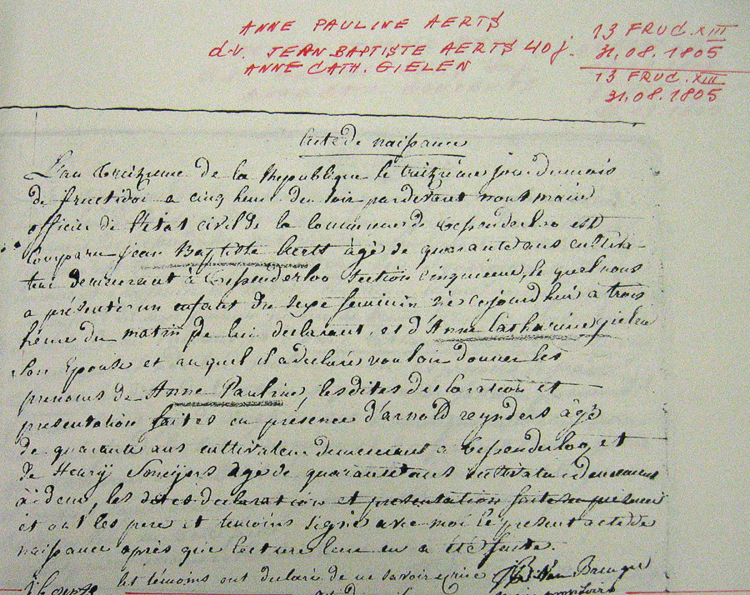 ANNE PAULINE AERTS
d.v. JEAN BAPTISTE AERTS 40 j.
ANNE CATH. GIELEN
13 FRUC. XIII
31.08.1805
13 FRUC. XIII
31.08.1805
Acte de naissance
L'an treizieme de la Republique le treizieme jour du mois
de fructidor a cinq heure du soir pardevant nous maire
officier de l'etat civil de la commune de Tessenderloo est
comparu Jean Baptiste Aerts âgé de quarante ans cultiva-
teur demeurant à Tessenderloo Section cinquieme, le quel nous
a présenté un enfant du sexe feminin née aujourd'hui à trois
heure du matin de lui declarant, et d'Anne Catharine gielen
son Epouse et auquel il a declaré vouloir donner les
prenoms de Anne Pauline, les dites declaration et
presentation faites en presence d'arnold reynders âgé
de quarante ans cultivateur demeurant a Tessenderloo, et
de Henry age de quarante ans cultivateur demeurant
les dites declaration et presentation faite en presence
et ont les pere et temoins signé avec moi le present acte de
naissance après que lecture leur en a été faite.
les témoins ont declaré de ne savoir ecrire Van